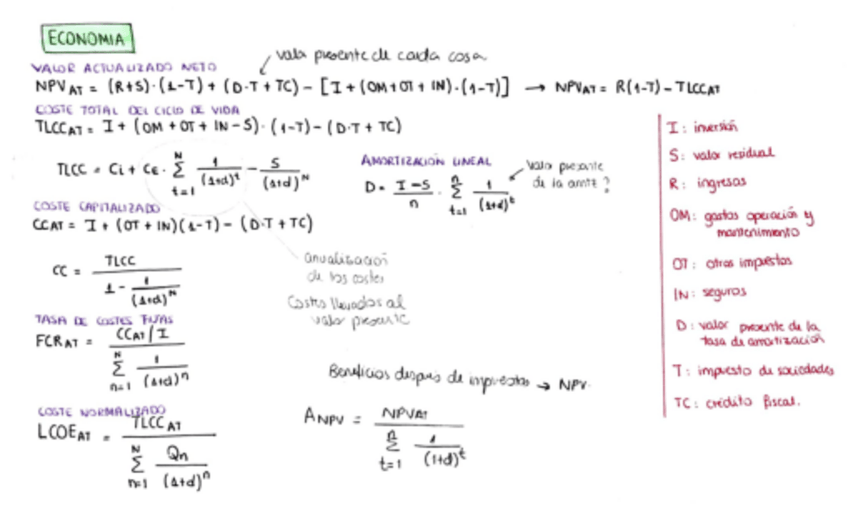 ECONOMIA
vala presente de cada cosa
VALOR ACTUALIZADO NETO
NPV_AT = (R+S)·(1-T) + (D·T + TC) - [I + (OM+OT+IN)·(1-T)] → NPV_AT = R(1-T) - TLCC_AT
COSTE TOTAL DEL CICLO DE VIDA
TLCC_AT = I + (OM + OT + IN - S)·(1-T) - (D·T + TC)
TLCC = Ci + Ce · Σ_{t=1}^{N} 1/(1+d)^t - S/(1+d)^N
AMORTIZACIÓN LINEAL
D = (I-S)/n · Σ_{t=1}^{n} 1/(1+d)^t
Valor presente
de la amte ?
COSTE CAPITALIZADO
CC_AT = I + (OT + IN)(1-T) - (D·T + TC)
CC = TLCC / (1 - 1/(1+d)^N)
anualización
de los costes
Costes llevados al
valor presente
TASA DE COSTES FIJAS
FCR_AT = (CC_AT/I) / (Σ_{n=1}^{N} 1/(1+d)^n)
Beneficios después de impuestos → NPV.
COSTE NORMALIZADO
LCOE_AT = TLCC_AT / (Σ_{n=1}^{N} Qn/(1+d)^n)
A_NPV = NPV_AT / (Σ_{t=1}^{n} 1/(1+d)^t)
I : inversión
S : valor residual
R : ingresos
OM : gastos operación y
mantenimiento
OT : otros impuestos
IN : seguros
D : valor presente de la
tasa de amortización
T : impuesto de sociedades
TC : crédito fiscal.